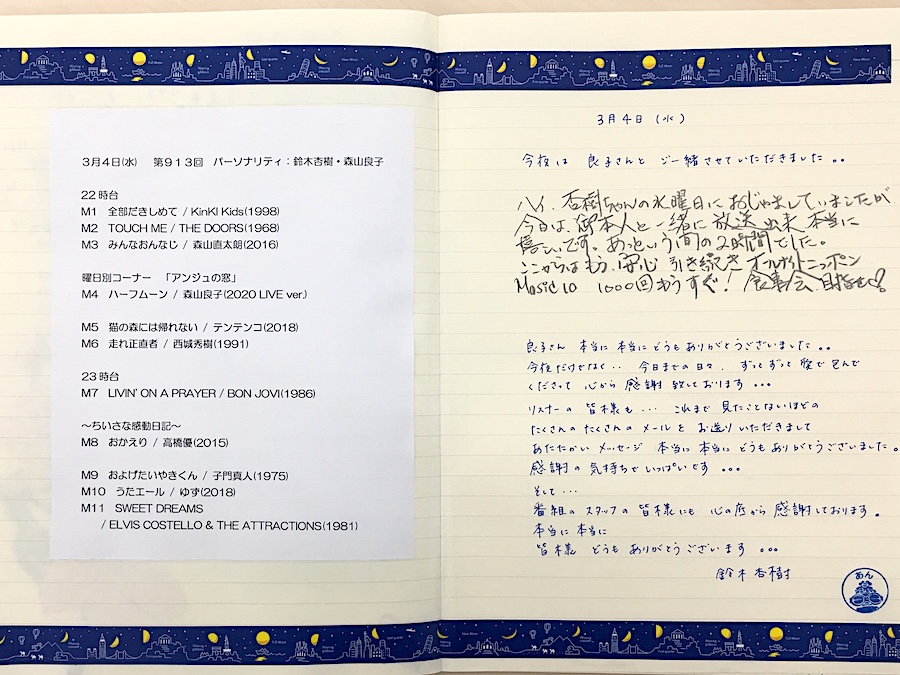 3月4日(水)　第913回　パーソナリティ：鈴木杏樹・森山良子
22時台
M1　全部だきしめて / KinKI Kids(1998)
M2　TOUCH ME / THE DOORS(1968)
M3　みんなおんなじ / 森山直太朗(2016)
曜日別コーナー　「アンジュの窓」
M4　ハーフムーン / 森山良子(2020 LIVE ver.)
M5　猫の森には帰れない / テンテンコ(2018)
M6　走れ正直者 / 西城秀樹(1991)
23時台
M7　LIVIN' ON A PRAYER / BON JOVI(1986)
～ちいさな感動日記～
M8　おかえり / 高橋優(2015)
M9　およげたいやきくん / 子門真人(1975)
M10　うたエール / ゆず(2018)
M11　SWEET DREAMS
/ ELVIS COSTELLO & THE ATTRACTIONS(1981)
3月4日（水）
今夜は 良子さんと ご一緒させていただきました。。
ハイ、杏樹ちゃんの水曜日におじゃましていましたが
今日は、御本人と一緒に放送出来、本当に
嬉しいです。あっという間の2時間でした。
ここからはもう、安心 引き続き オールナイトニッポン
Music10 1000回もうすぐ! 食事会、目指せ!
良子さん 本当に 本当に どうも ありがとうございました。。
今夜だけでなく・・ 今日までの日々、ずっとずっと 愛で包んで
くださって 心から 感謝 致しております。。。
リスナーの 皆様も・・・ これまで 見たことないほどの
たくさんの たくさんの メールを お送りいただきまして
あたたかい メッセージ 本当に 本当に どうも ありがとうございました。
感謝の 気持ちで いっぱいです 。。。
そして・・・
番組の スタッフの 皆様にも 心の底から 感謝しております。
本当に 本当に
皆様 どうも ありがとうございます 。。。
鈴木 杏樹
あん